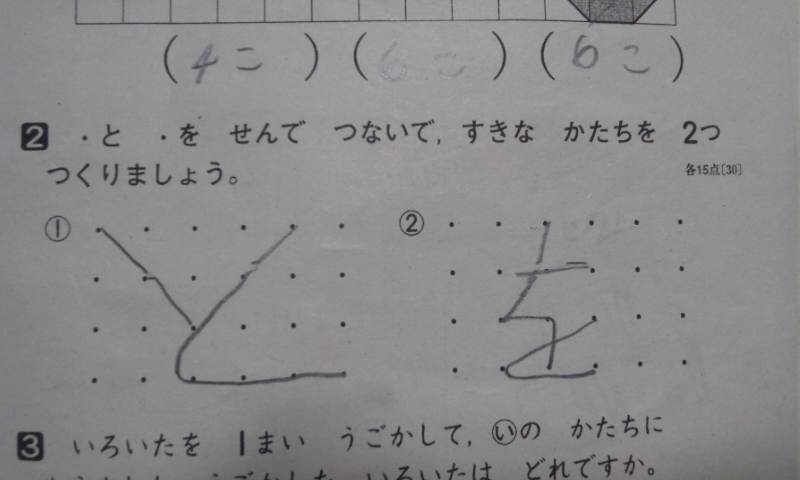 (4こ) (6こ) (6こ)
2 ・と ・を せんで つないで, すきな かたちを 2つ
つくりましょう。
各15点〔30〕
① ②
と を
3 いろいたを 1まい うごかして, ㋑の かたちに
いろいたは どれですか。